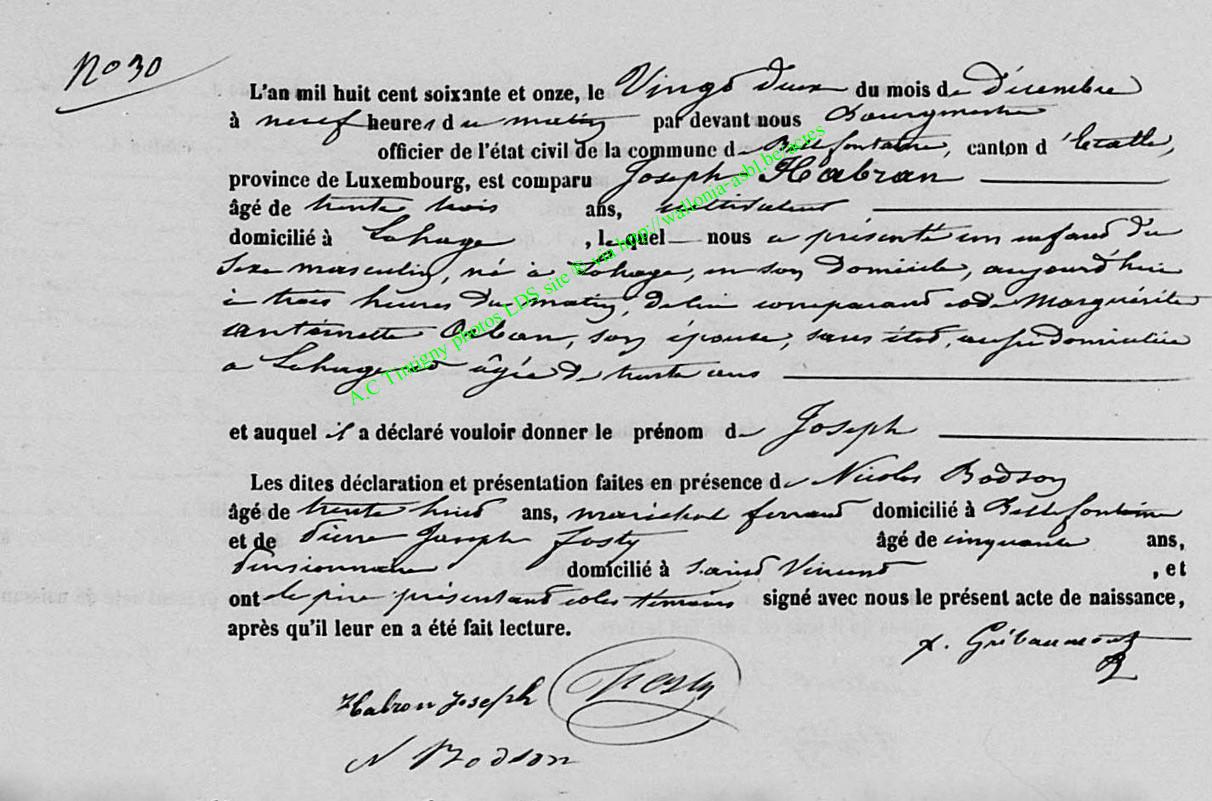 No 30
L'an mil huit cent soixante et onze, le Vingt deux du mois de Décembre
à neuf heures du matin par devant nous Bourgmestre
officier de l'état civil de la commune de Bellefontaine, canton d'Etalle,
province de Luxembourg, est comparu Joseph Habran
âgé de trente trois ans, cultivateur
domicilié à Lahage, lequel nous a présenté un enfant du
sexe masculin, né à Lahage, en son domicile, aujourd'hui
à trois heures du matin, de lui comparant et de Marguérite
antoinette Orban, son épouse, sans état, aussi domiciliée
a Lahage et âgée de trente ans
et auquel il a déclaré vouloir donner le prénom de Joseph
Les dites déclaration et présentation faites en présence de Nicolas Bodson
âgé de trente huit ans, maréchal ferrant domicilié à Bellefontaine
et de Pierre Joseph Fosty âgé de cinquante ans,
Pensionnaire domicilié à Saint Vincent, et
ont le père présentant et les témoins signé avec nous le présent acte de naissance,
après qu'il leur en a été fait lecture.
x. Gribaumont
Habran Joseph Fosty
N Bodson
A.C Tintigny photos LDS site © via http://wallonia-asbl.be/actes